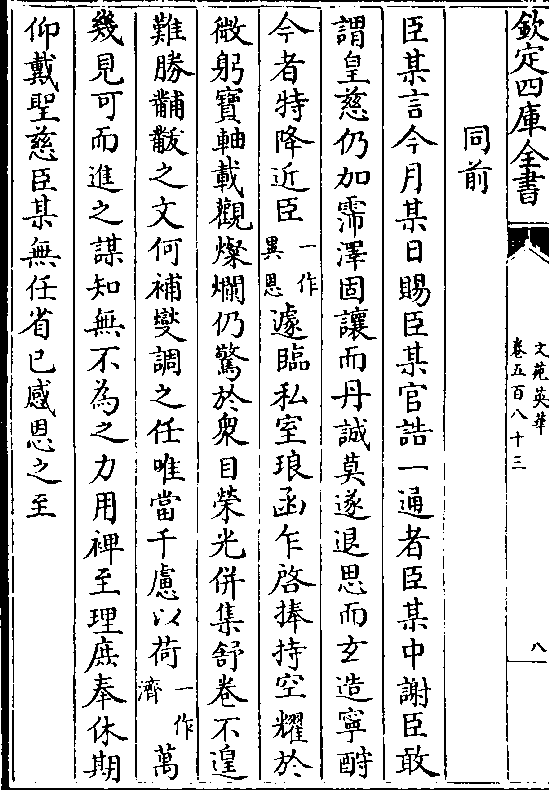 欽定四庫全書
文苑英華
卷五百八十三
八
同前
臣某言今月某日賜臣某官誥一通者臣某中謝臣敢
謂皇慈仍加霈澤固讓而丹誠莫遂退思而玄造寧酧
今者特降近臣一作異恩遽臨私室琅函乍啓捧持空耀於
微躬寶軸載觀燦爛仍驚於衆目榮光併集舒卷不遑
難勝黼黻之文何補燮調之任唯當千慮以荷一作濟萬
幾見可而進之謀知無不為之力用裨至理庶奉休期
仰戴聖慈臣某無任省已感恩之至